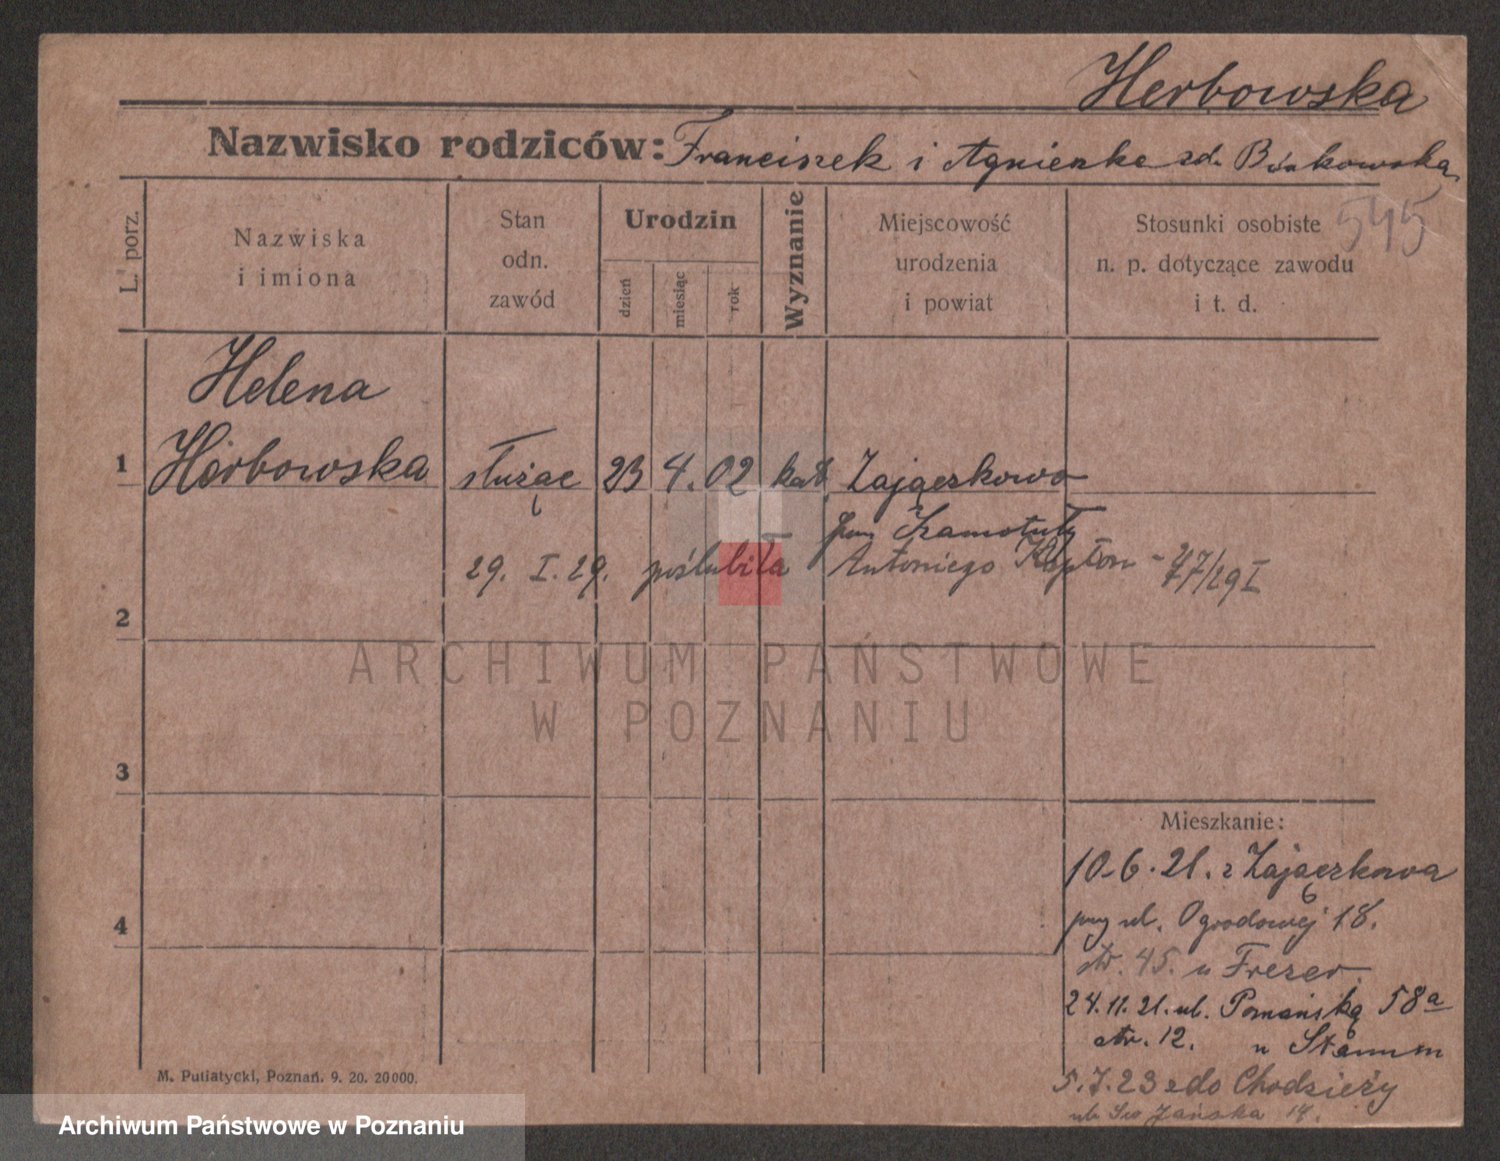 Herbowska
Nazwisko rodziców: Franciszek i Agnieszka zd. Binkowska
545
L. porz.
Nazwiska
i imiona
Stan
odn.
zawód
Urodzin
dzień
miesiąc
rok
Wyznanie
Miejscowość
urodzenia
i powiat
Stosunki osobiste
n. p. dotyczące zawodu
i t. d.
Helena
1 Herbowska służąc 23 4. 02 kat. Zajączkowo
pow. Szamotuły
29. I. 29. poślubiła Antoniego 77/29 I
2
ARCHIWUM PAŃSTWOWE
W POZNANIU
3
Mieszkanie:
10.6.21. z Zajączkowa
4
przy ul. Ogrodowej 18.
str. 45. u Frezer
24.11.21. ul. Poznańska 58a
str. 12. u Stamm
5.7.23 do Chodzieży
ul. Sw Jańska 14.
M. Putiatycki, Poznań. 9. 20. 20000.
Archiwum Państwowe w Poznaniu